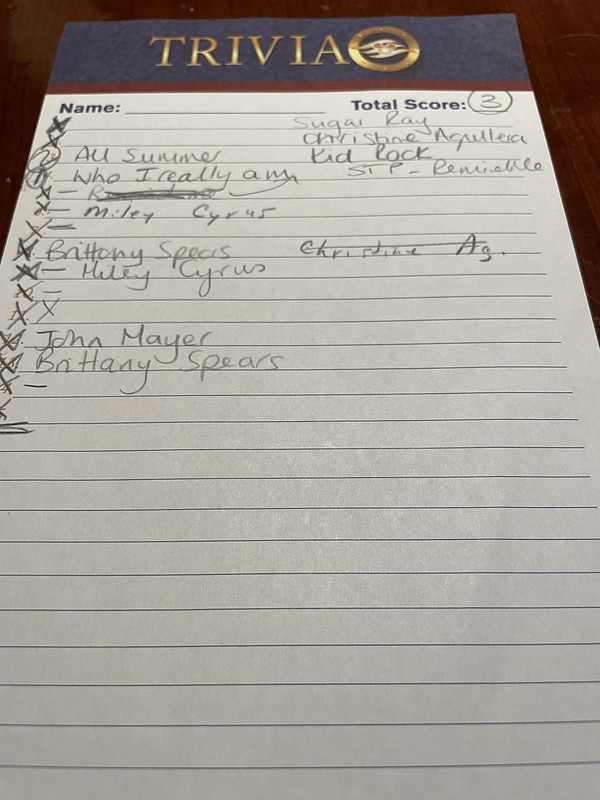 TRIVIA
Name: Total Score: 3
Sugar Ray
Christine Aguilera
2 All Summer Kid Rock
1 Who I really am STP - Remicible
Miley Cyrus
Brittony Spears Christine Ag.
Miley Cyrus
John Mayer
Brittany Spears